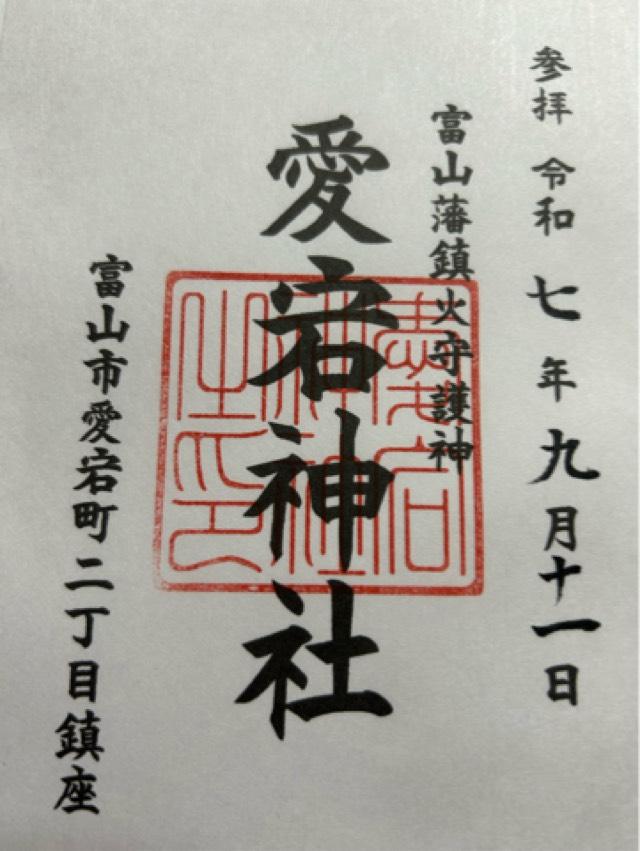 参拝 令和 七 年 九 月 十一 日
富山藩鎮火守護神
愛宕神社
富山市愛宕町二丁目鎮座
愛宕神社之印